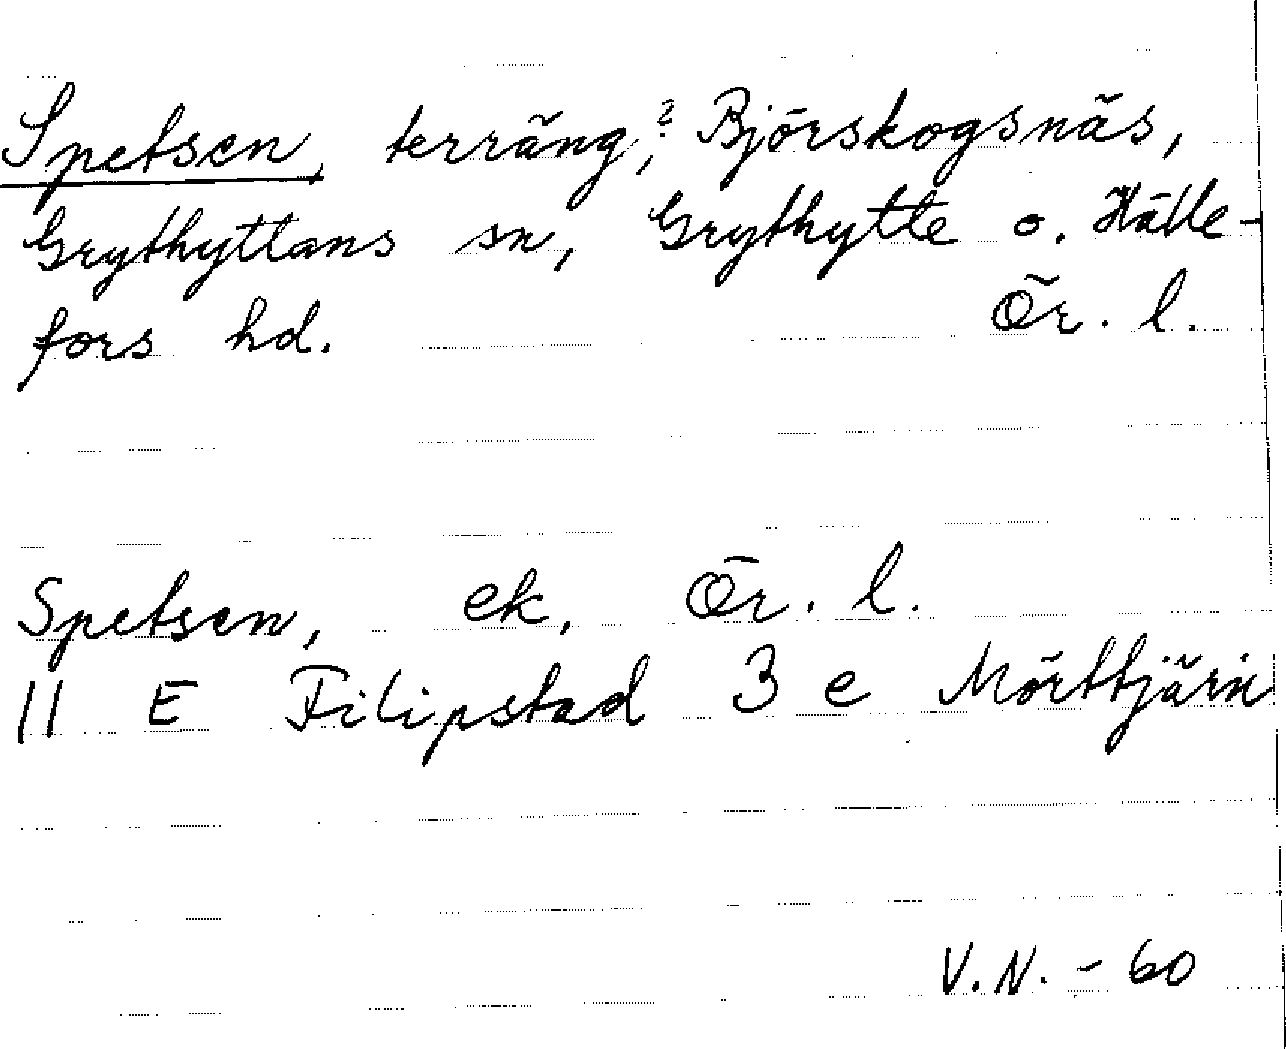 Spetsen, terräng,? Björskogsnäs,
Grythyttans sn, Grythytte o. Hälle-
fors hd. Ör. l.
Spetsen, ek, Ör. l.
11 E Filipstad 3 e Mörttjärn
V.N. - 60